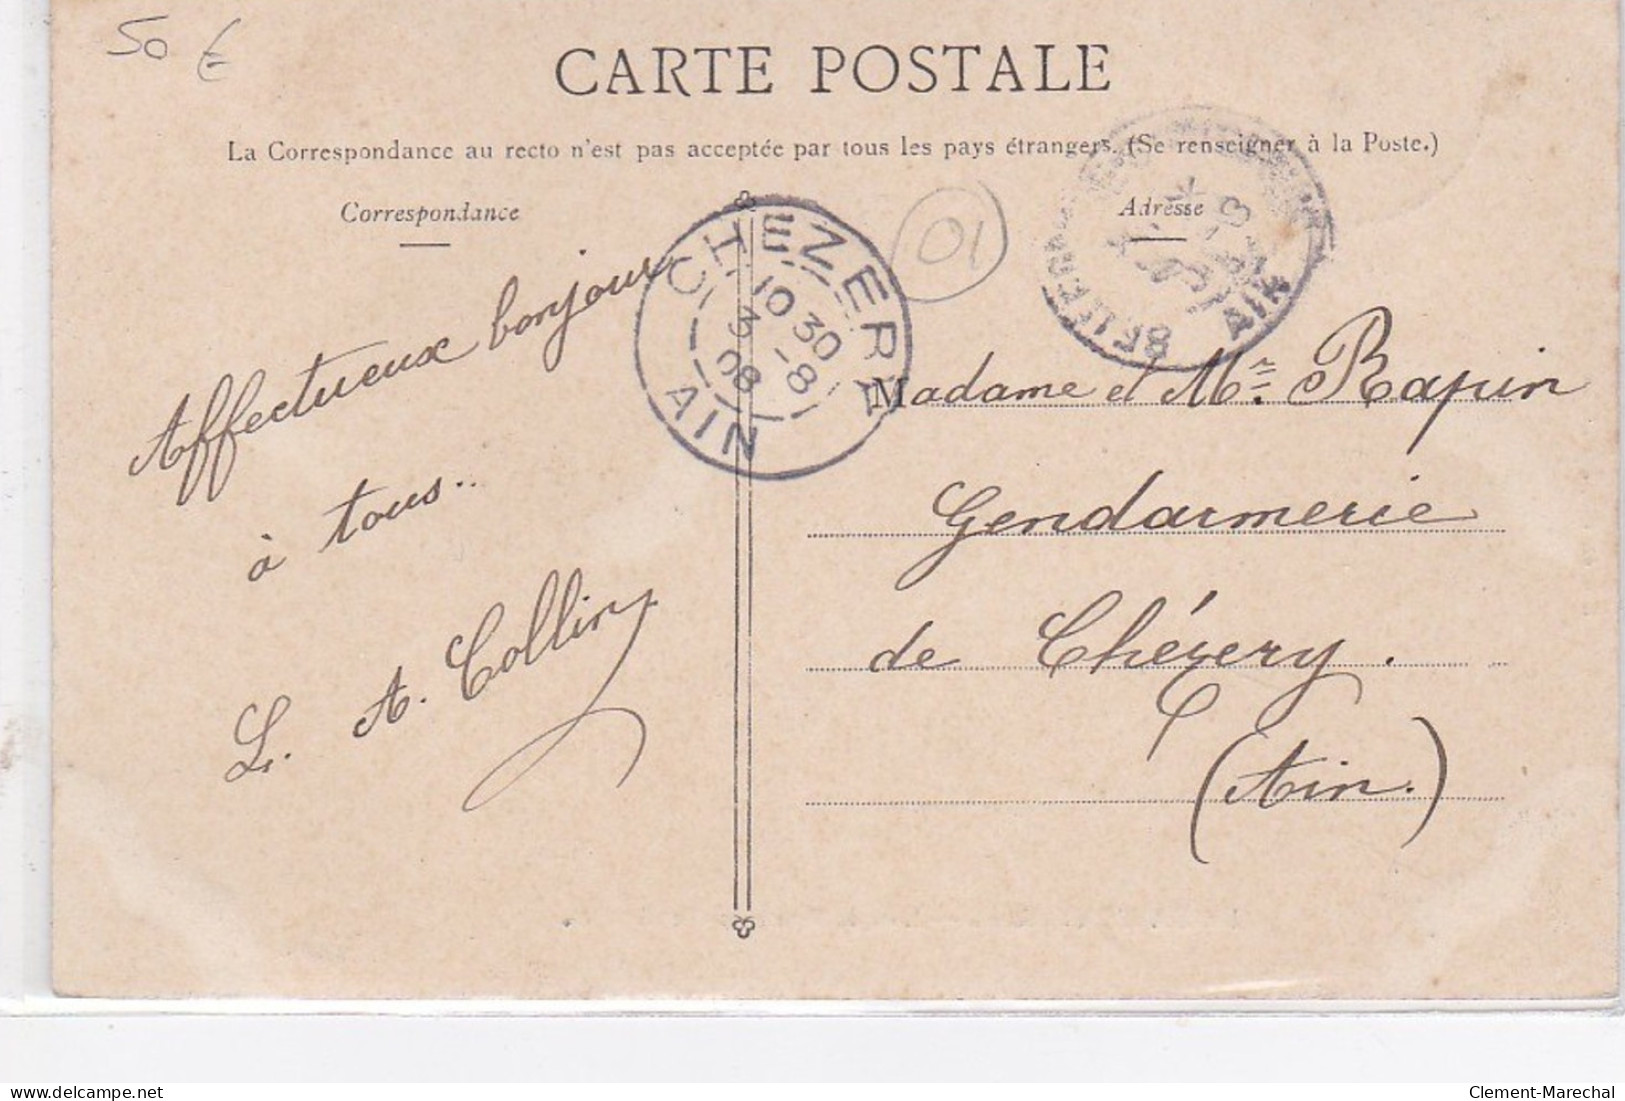 50 €
CARTE POSTALE
La Correspondance au recto n'est pas acceptée par tous les pays étrangers. (Se renseigner à la Poste.)
Correspondance
Adresse
01
CHEZERY
10 30
3 -8
08
AIN
AIN
Affectueux bonjour
à tous..
L. A. Collin
Madame et Mr. Rapin
Gendarmerie
de Chézery.
(Ain.)
delcampe.net
Clement-Marechal